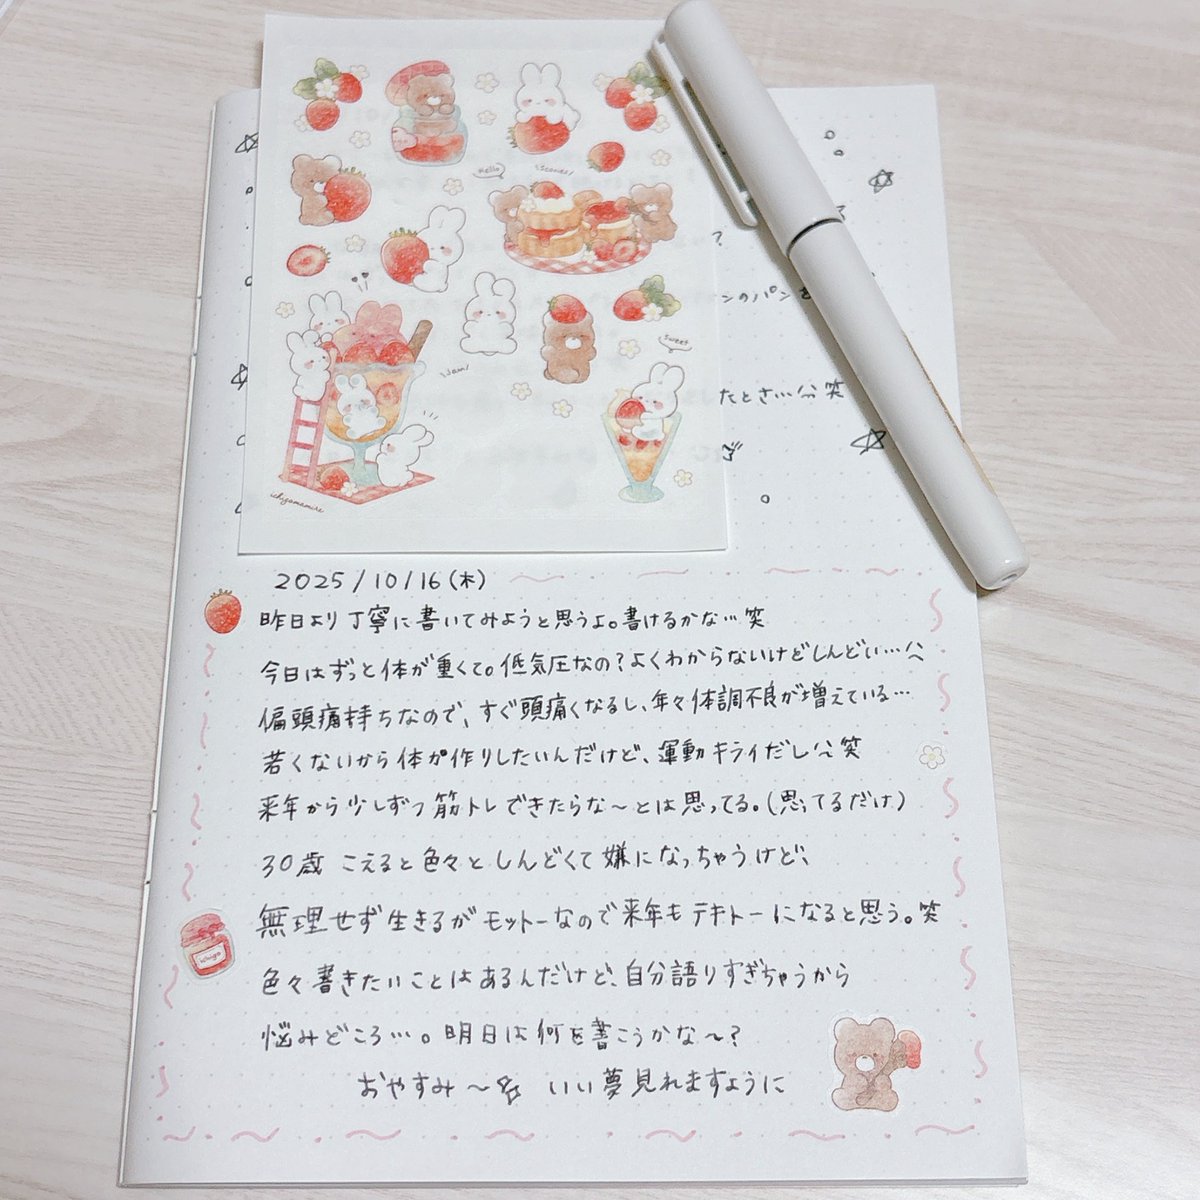 Hello
Scones!
?
ンのパンを
Jam!
sweet
たとさ…笑
ichigomamire
2025/10/16(木)
昨日より丁寧に書いてみようと思うよ。書けるかな…笑
今日はずっと体が重くて。低気圧なの?よくわからないけどしんどい…
偏頭痛持ちなので、すぐ頭痛くなるし、年々体調不良が増えている…
若くないから体が作りしたいんだけど、運動キライだし笑
来年から少しずつ筋トレできたらな〜とは思ってる。(思ってるだけ)
30歳こえると色々としんどくて嫌になっちゃうけど、
無理せず生きるがモットーなので来年もテキトーになると思う。笑
ichigo
色々書きたいことはあるんだけど、自分語りすぎちゃうから
悩みどころ…。明日は何を書こうかな〜?
おやすみ〜☆ いい夢見れますように